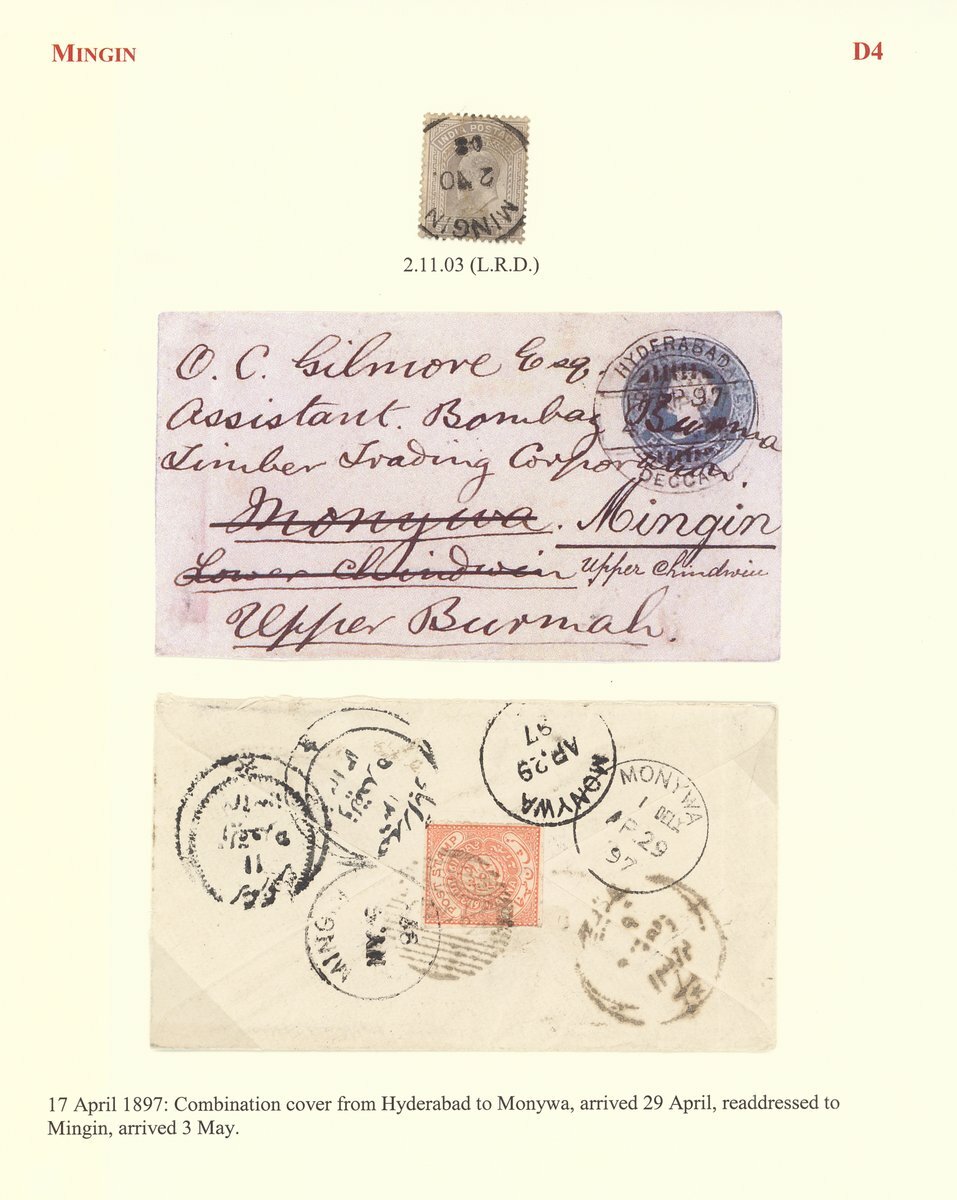 MINGIN
D4
INDIA POSTAGE
03
2 NO.
MINGIN
2.11.03 (L.R.D.)
O. C. Gilmore Esq.
Assistant Bombay Burma
Timber Trading Corporation.
Monywa. Mingin
Lower Chindwin Upper Chindwin
Upper Burmah.
HYDERABAD
AP 97
DECCAN
MONYWA
AP.29
97
MONYWA
1 DELY
AP 29
97
POST STAMP
MINGIN
17 April 1897: Combination cover from Hyderabad to Monywa, arrived 29 April, readdressed to
Mingin, arrived 3 May.